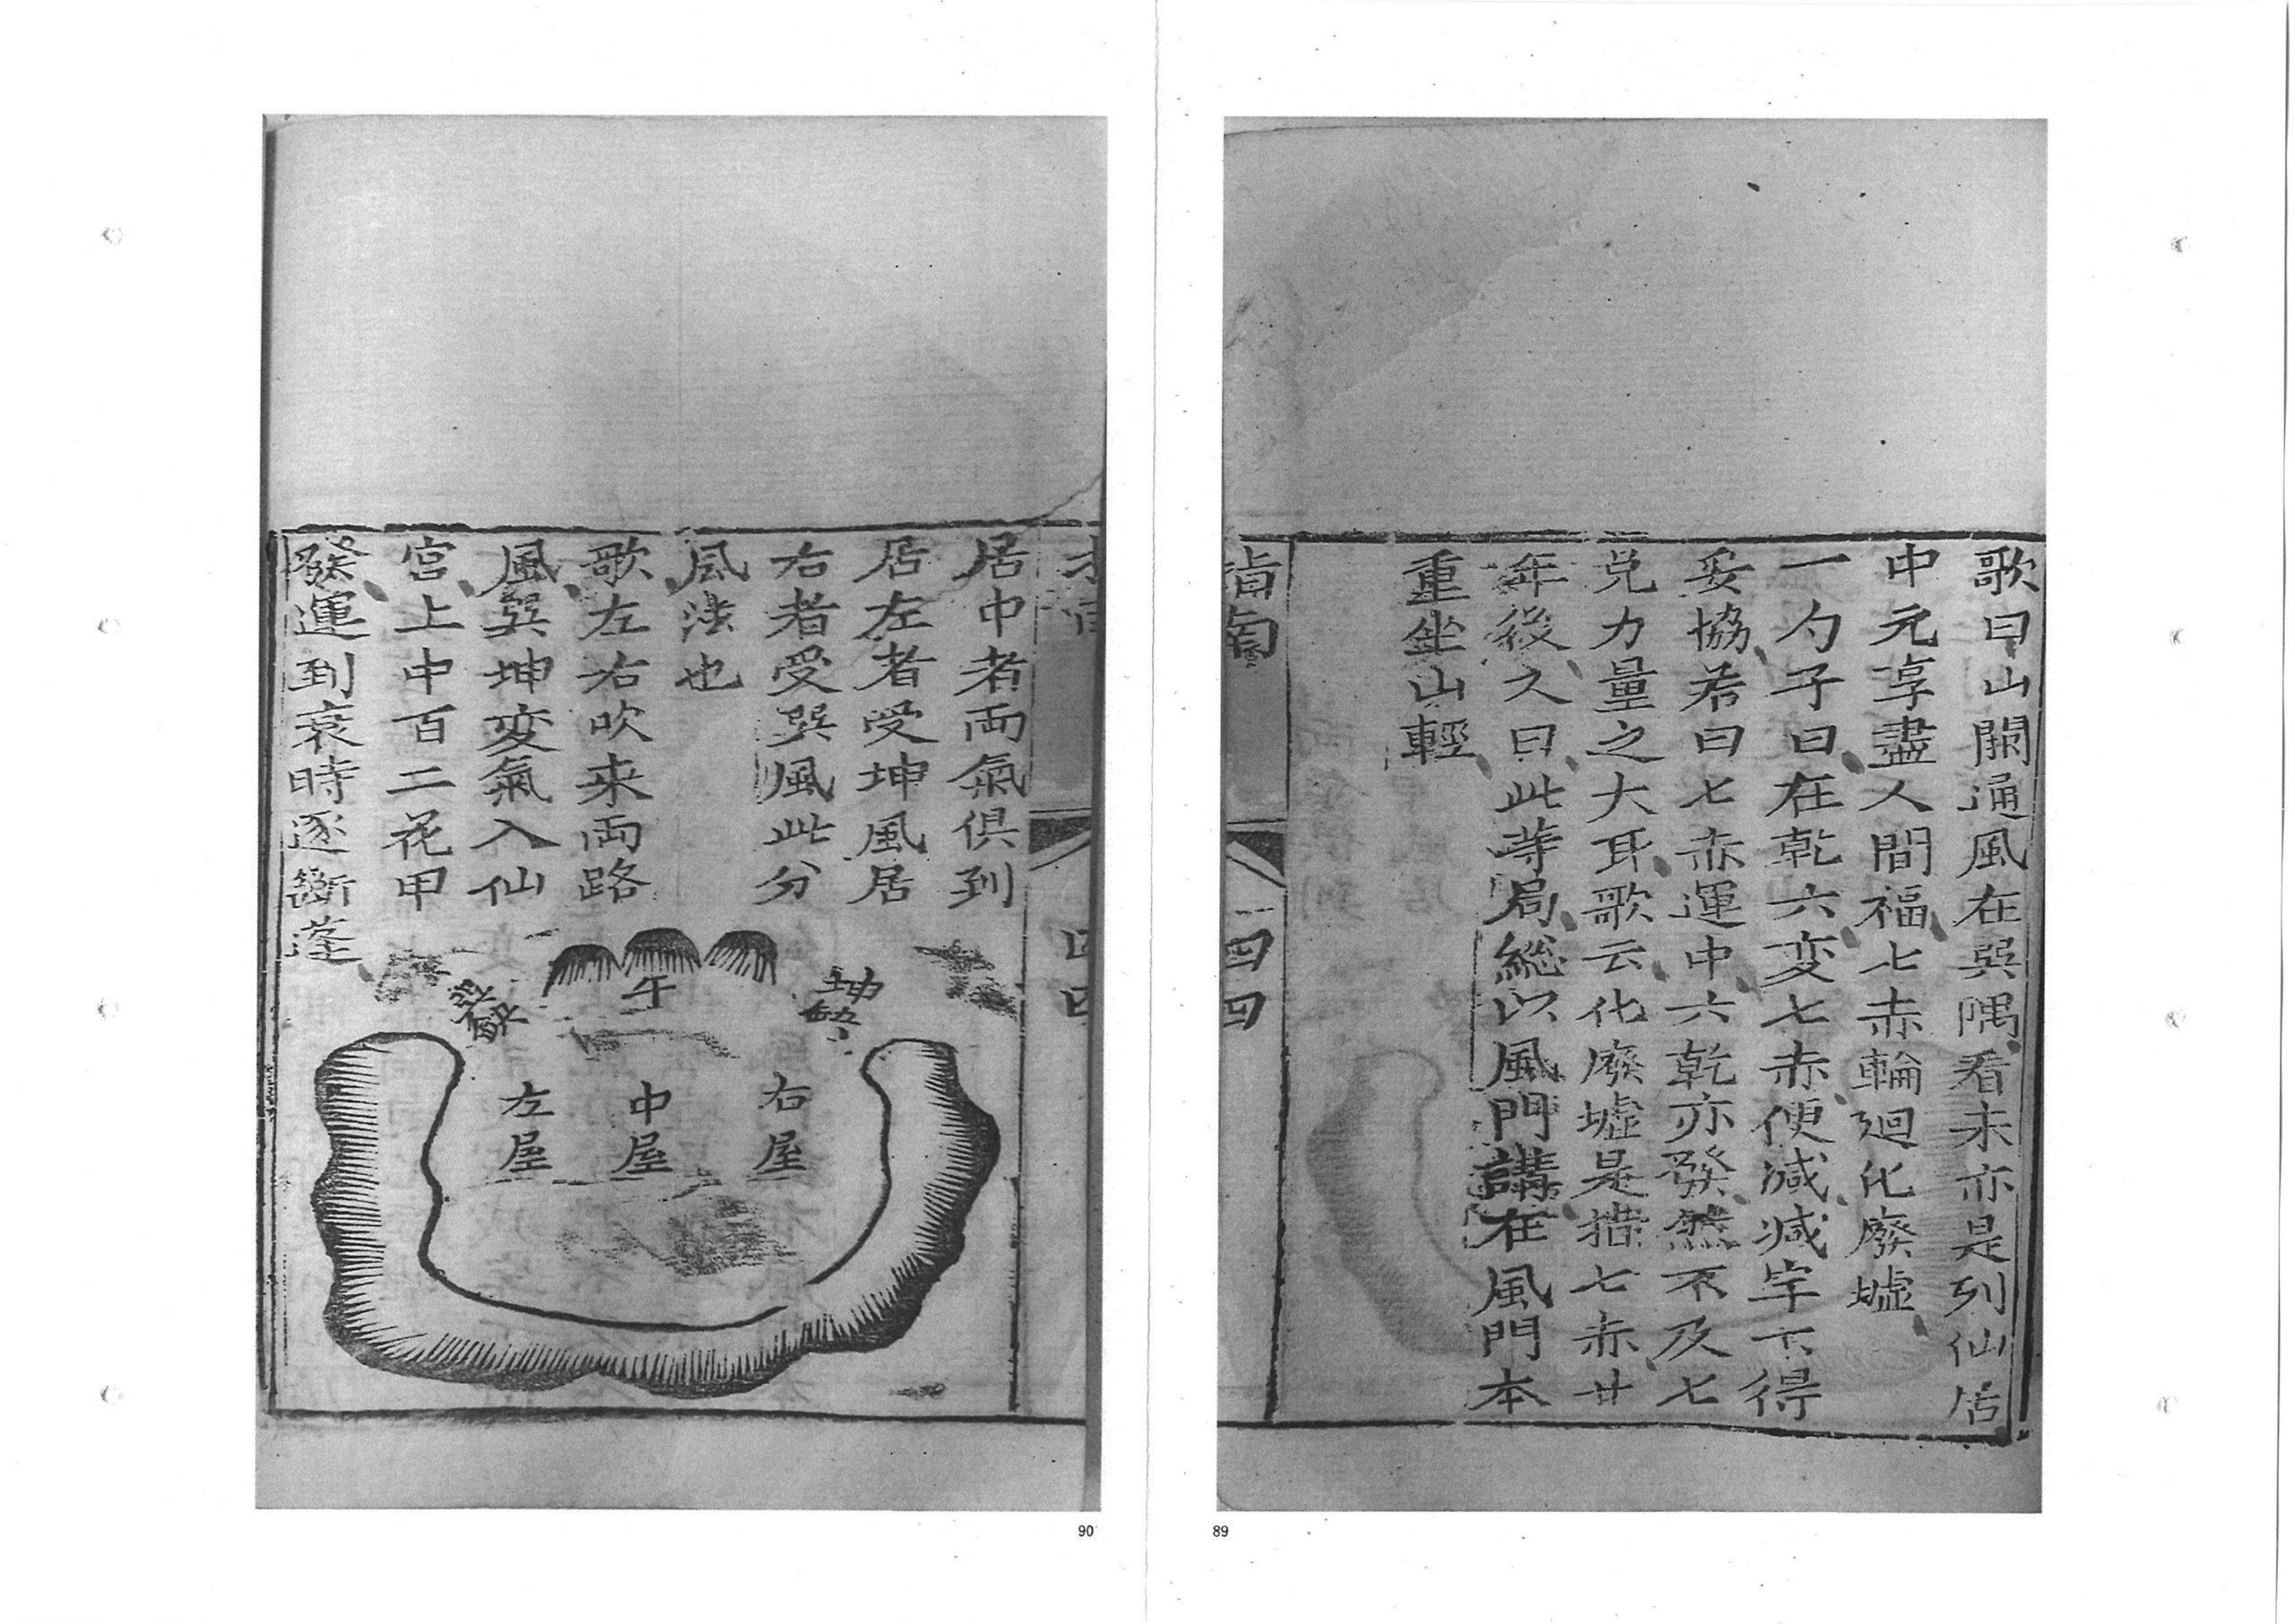 歌曰山關通風在巽隅看未亦是列仙居
中元享盡人間福七赤輪迴化廢墟
一勺子曰在乾六变七赤便減減字不得
妥協若曰七赤運中六乾亦發然不及七
兑力量之大耳歌云化廢墟是指七赤廿
年後又曰此等局總以風門講在風門本
重坐山輕
指南
四四
89
居中者両氣俱到
居左者受坤風居
右者受巽風此分
風法也
歌左右吹来両路
風巽坤变氣入仙
宮上中百二花甲
發運到衰時逐斷蓬
午
右屋
中屋
左屋
四四
90